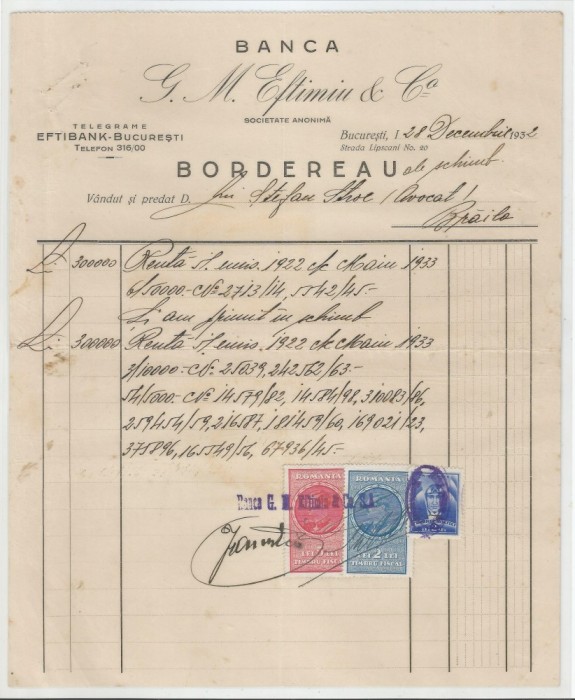 BANCA
G. M. Eftimiu & Co
SOCIETATE ANONIMĂ
TELEGRAME
EFTIBANK-BUCUREȘTI
TELEFON 316/00
București, 28 Decembrie 1932
Strada Lipscani No. 20
BORDEREAU de schimb
Vândut și predat D. Ștefan (Avocat)
Brăila
L. 300000 Rentă emis. 1922 1933
6/50000.- No 2713/14, 5542/45.-
Și am primit în schimb
L. 300000 Rentă emis. 1922 1933
3/10000.- No 25039, 242562/63.-
54/5000.- No 14579/82, 14584/98, 310083/86,
259454/59, 216587, 181459/60, 169021/23,
375896, 165549/56, 67936/45.-
ROMANIA
ROMANIA
Banca G. M. Eftimiu & Co. S.A.
LEI 2 LEI
TIMBRU FISCAL
TIMBRU FISCAL